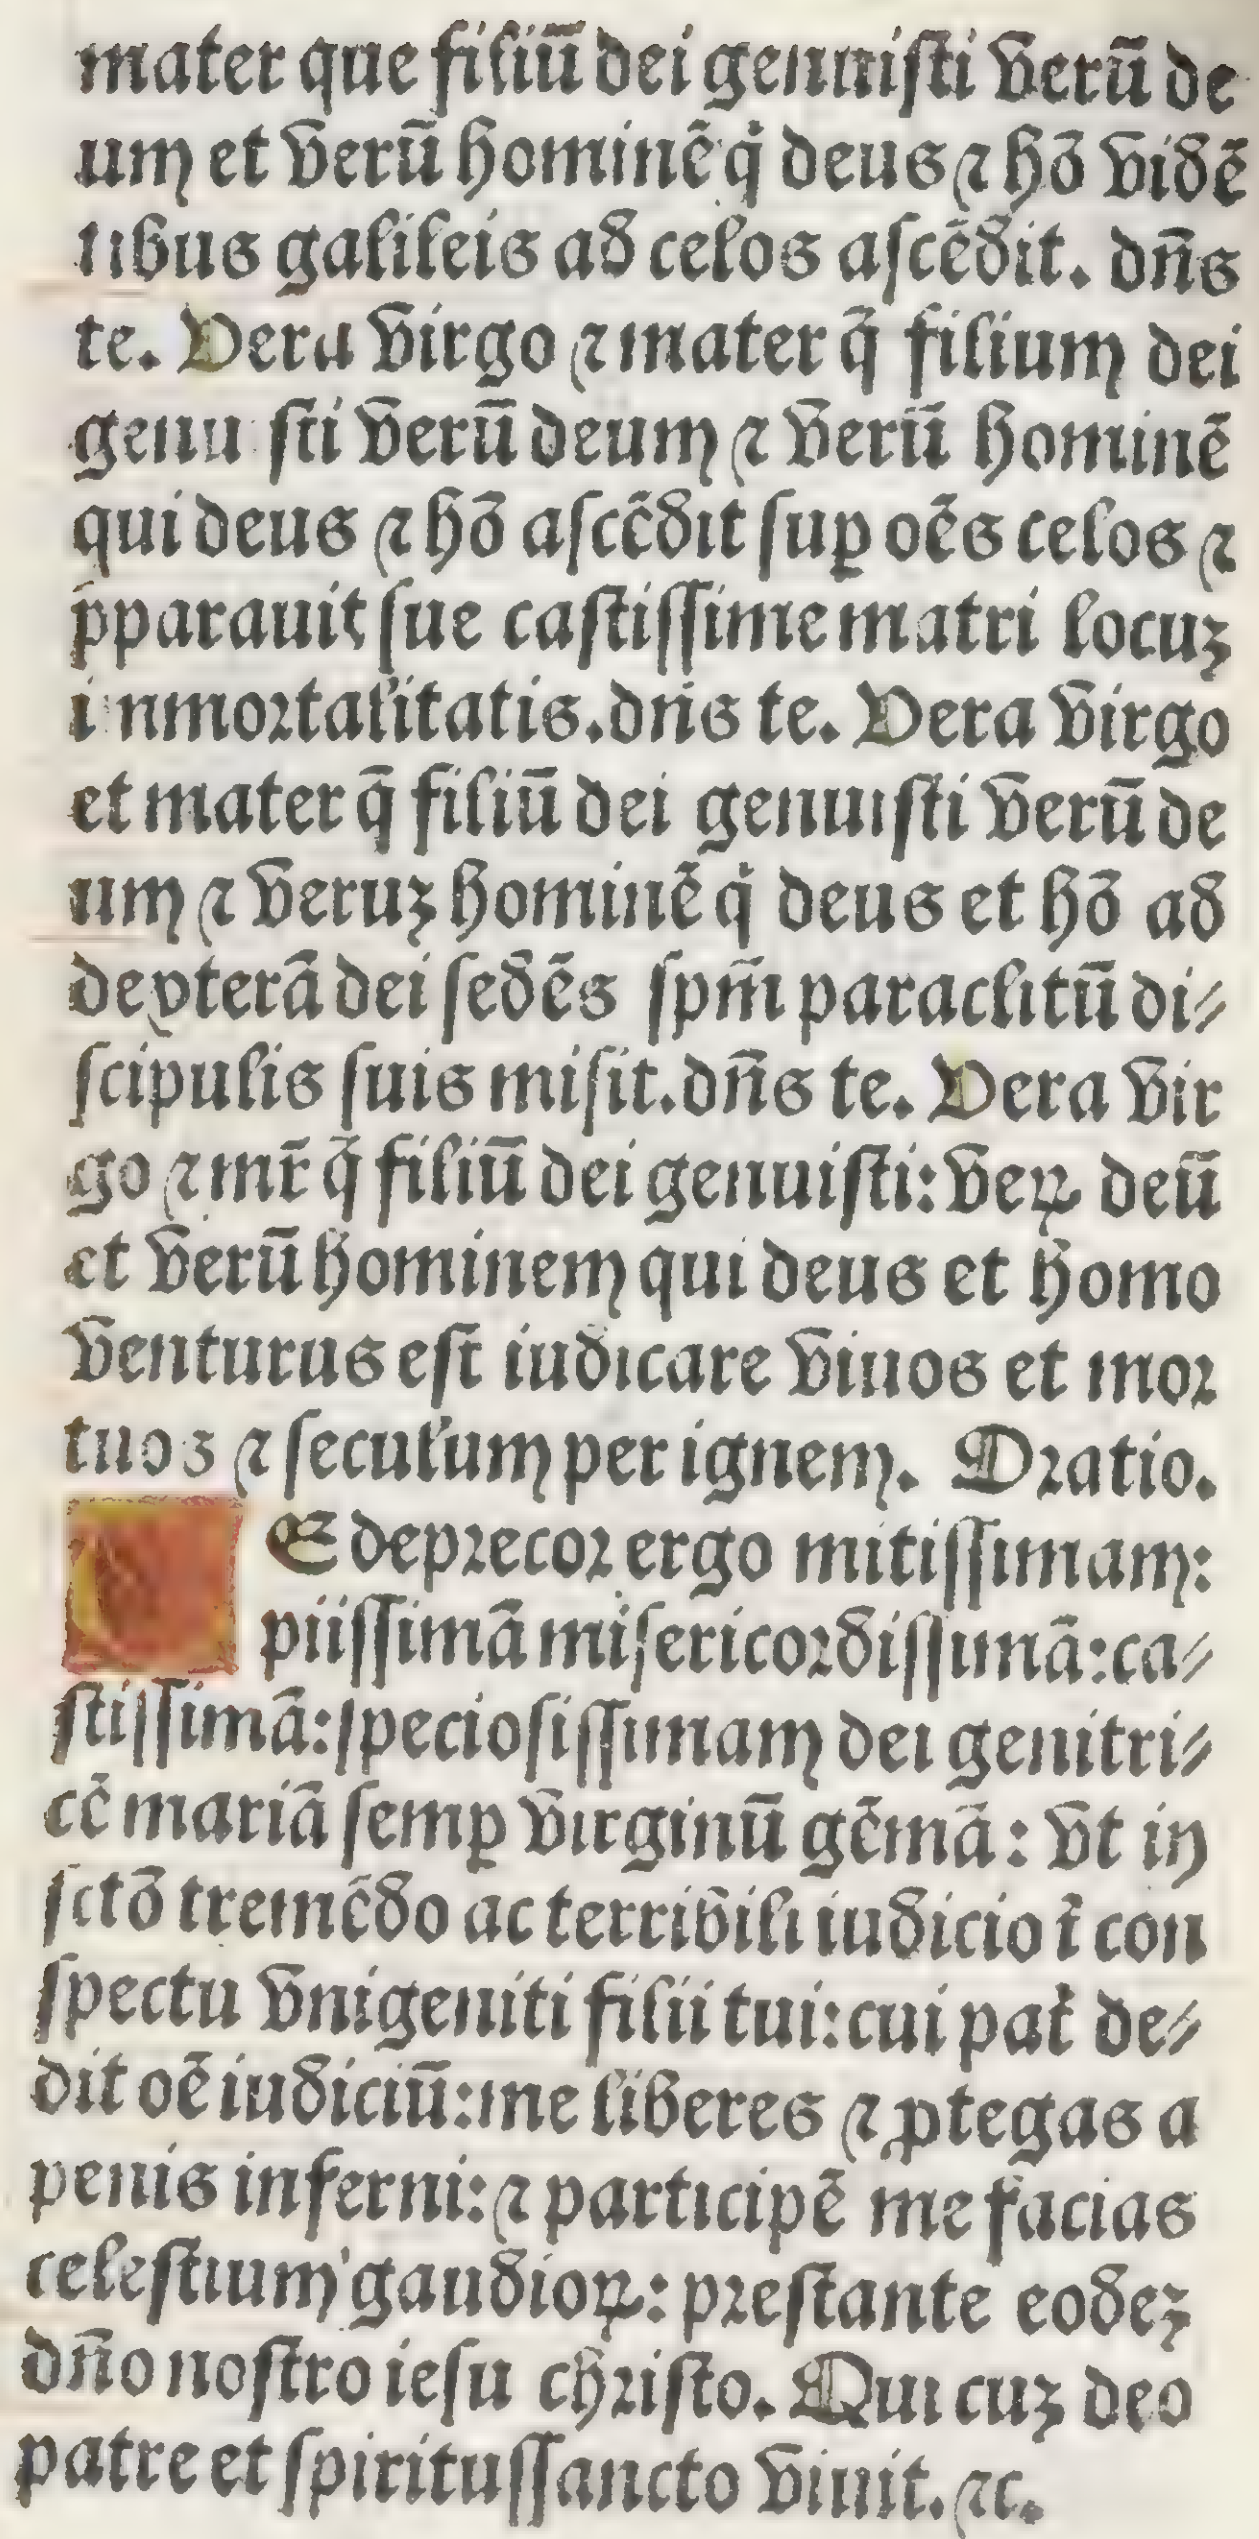 mater que filiū dei genuisti verū de
um et verū hominē q̇ deus ⁊ hō vidē
tibus galileis ad celos ascēdit. dn̄s
te. Vera virgo ⁊ mater q̄ filium dei
genuisti verū deum ⁊ verū hominē
qui deus ⁊ hō ascēdit suꝑ oēs celos ⁊
p̄parauit sue castissime matri locuz
inmortalitatis. dn̄s te. Vera virgo
et mater q̄ filiū dei genuisti verū de
um ⁊ veruz hominē q̇ deus et hō ad
dexterā dei sedēs spm̄ paraclitū di⸗
scipulis suis misit. dn̄s te. Vera vir
go ⁊ mr̄ q̄ filiū dei genuisti: veꝝ deū
et verū hominem qui deus et homo
venturus est iudicare viuos et mor
tuos ⁊ seculum per ignem. Oratio.
E deprecor ergo mitissimam:
piissimā misericordissimā: ca⸗
stissimā: speciosissimam dei genitri⸗
cē mariā semꝑ virginū gēmā: vt in
sctō tremēdo ac terribili iudicio ī con
spectu vnigeniti filii tui: cui pat̄ de⸗
dit oē iudiciū: me liberes ⁊ ꝓtegas a
penis inferni: ⁊ participē me facias
celestium gaudioꝝ: prestante eodez
dn̄o nostro iesu christo. Qui cuz deo
patre et spiritussancto viuit. ⁊c.